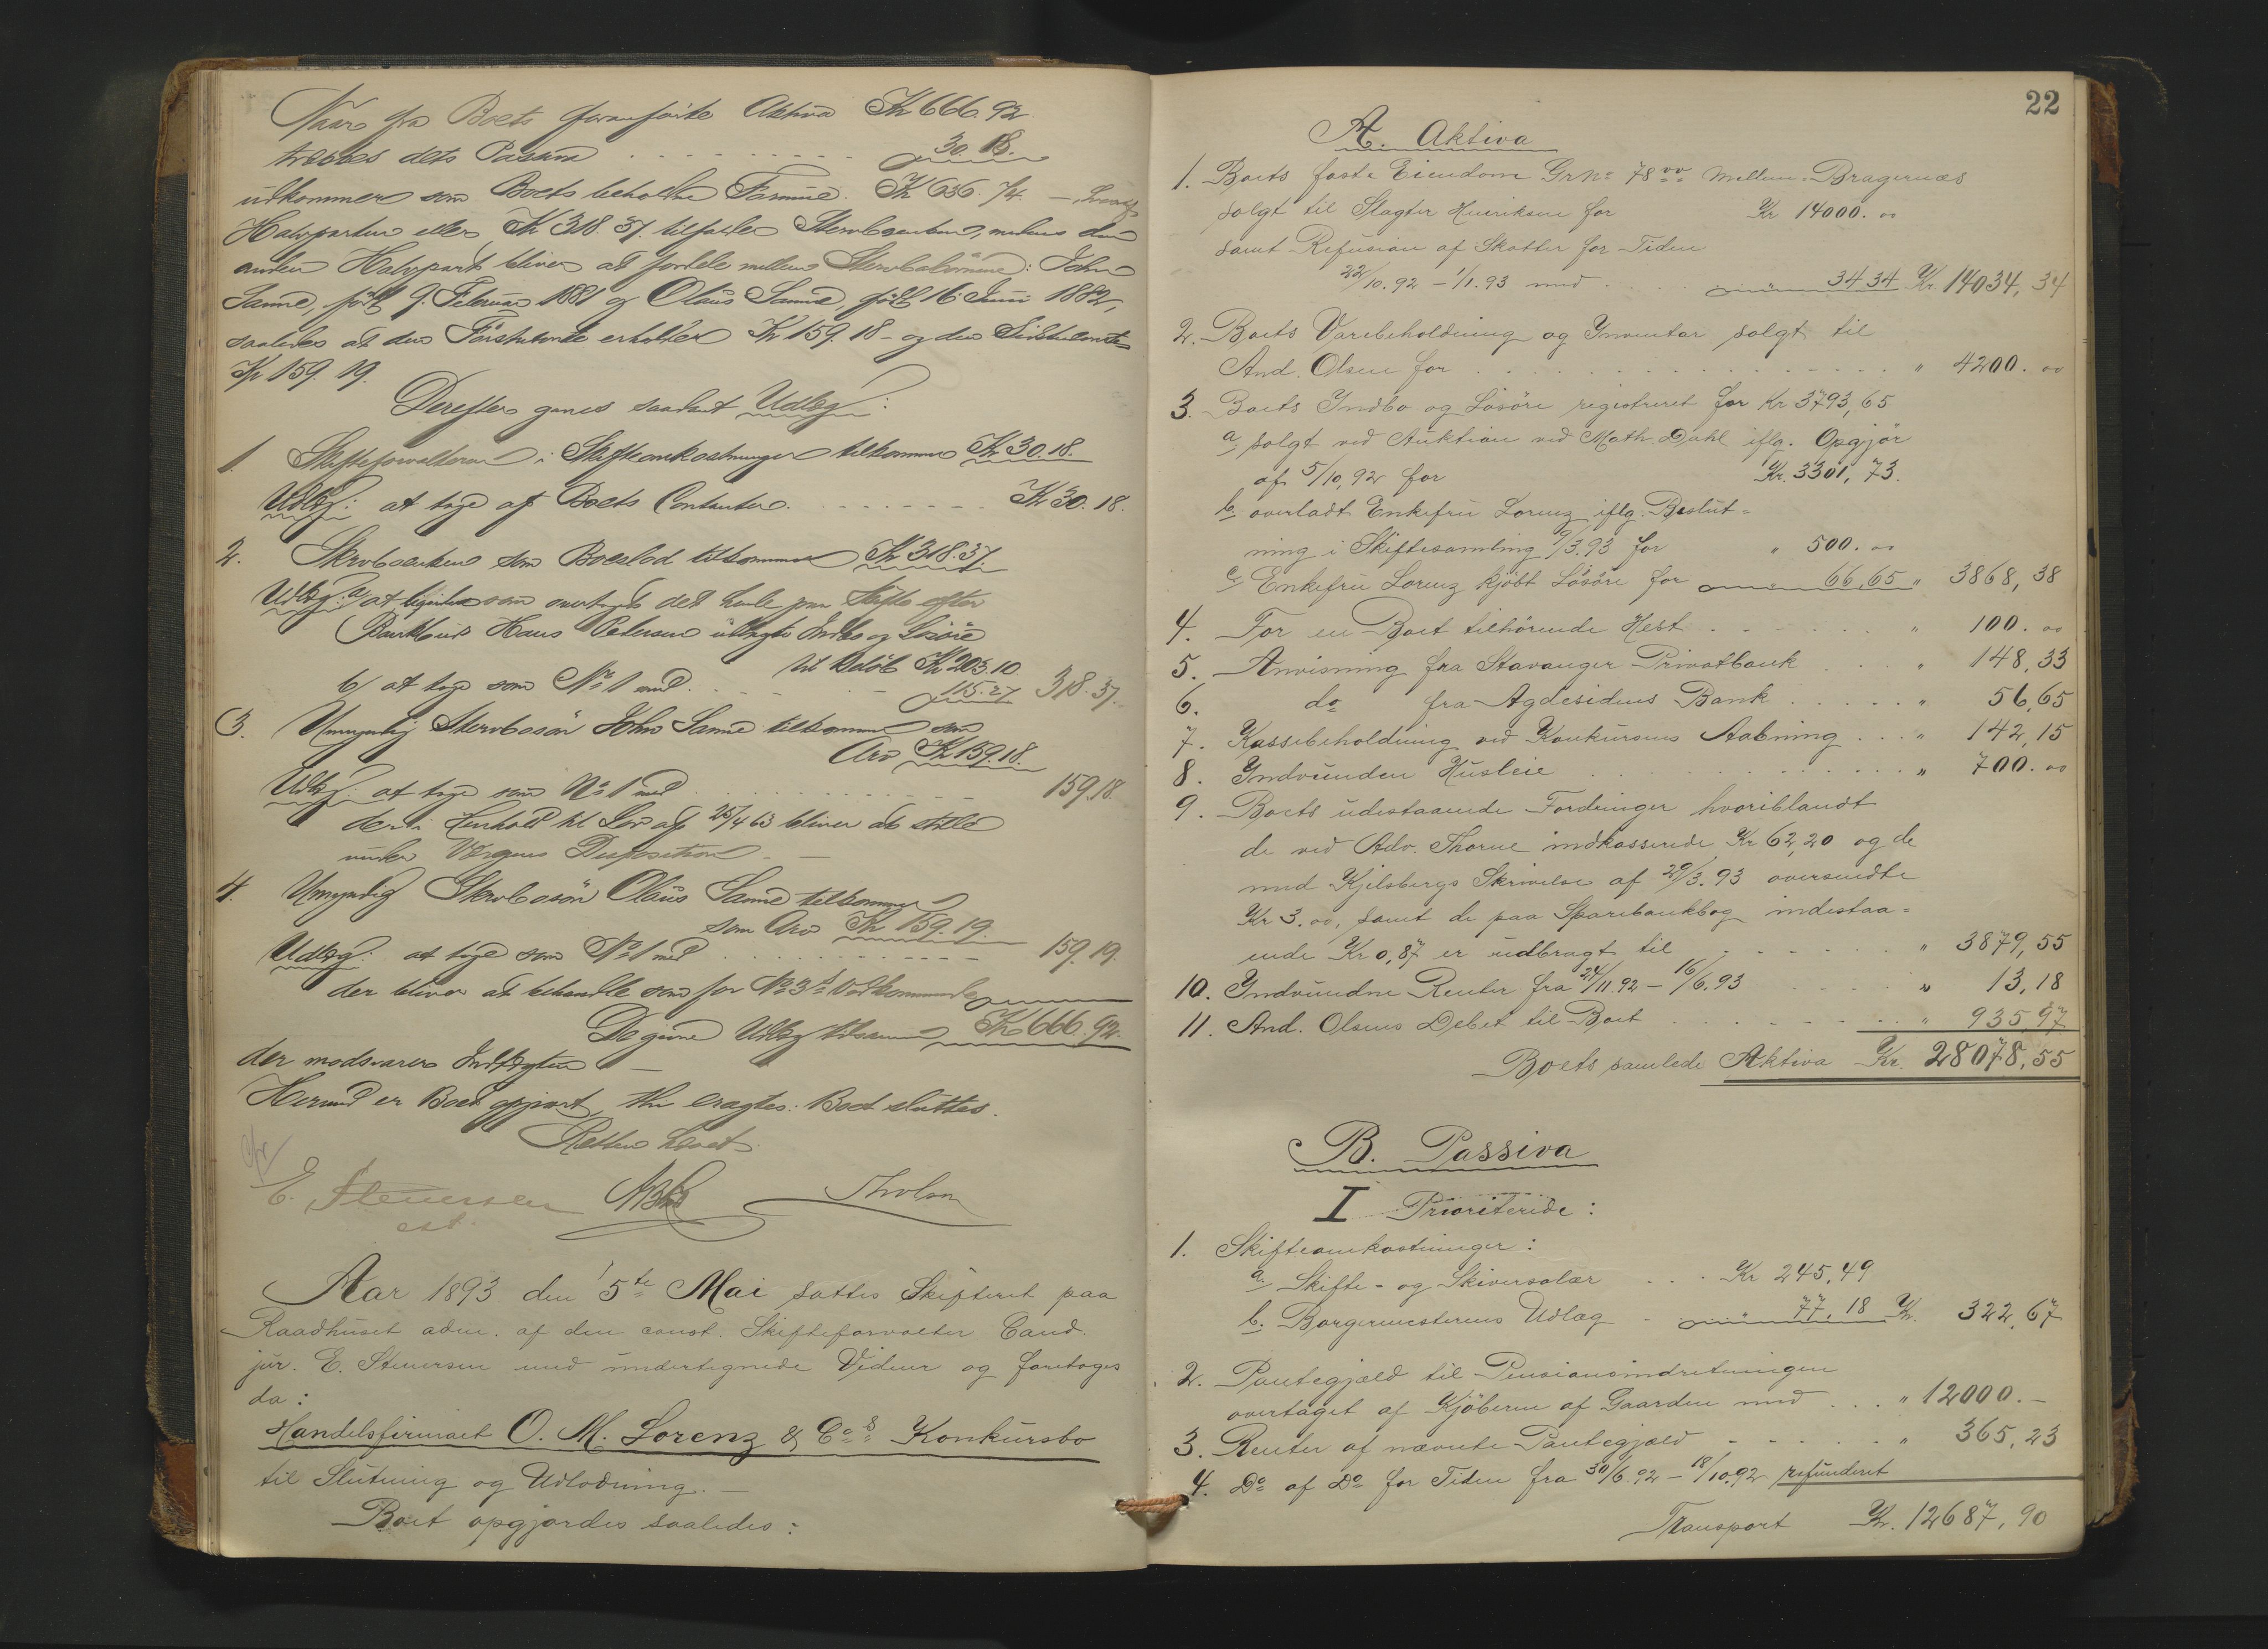 Naar fra Boets foranførte Aktiva Kr 666.92
trækkes dets Passiva . . . . . . . . . 30.18.
udkommer som Boets beholdne Formue. Kr 636.74. — hvoraf
Halvparten eller Kr 318.37. tilfalder Stervboenken, medens den
anden Halvpart bliver at fordele mellem Stervbosönnene: John
Sanne, født 9. Februar 1881 og Olaus Sanne, født 16. Juni 1882,
saaledes at den Förstnævnte erholder Kr 159.18 – og den Sidstnævnte
Kr 159.19.
Derefter gives saadant Udlæg:
1. Skifteforvalteren i Skifteomkostninger tilkommer Kr 30.18.
Udlæg: at tage af Boets Contanter. . . . . . . . . Kr 30.18.
2. Stervboenken som Boeslod tilkommer Kr 318.37.
Udlæg: a/ at som overtaget det hende paa Skifte efter
Hans Petersen udlagte Indbo og Løsøre
til Beløb Kr 203.10
b/ at tage som No 1 med . . . . 115.27 318.37.
3. Umyndig Stervbosön John Sanne tilkommer som
Arv Kr 159.18.
Udlæg: at tage som No 1 med . . . . . . . . 159.18.
der i Henhold til Lov af 25/4 63 bliver at stille
under Værgens Disposition. —
4. Umyndig Stervbosön Olaus Sanne tilkommer
som Arv Kr 159.19.
Udlæg: at tage som No 1 med . . . . . . . . 159.19.
der bliver at behandle som for No 3's Vedkommende
De givne Udlæg tilsammen Kr 666.92.
der modsvarer Indtægten —
Hermed er Boet opgjort, thi eragtes: Boet sluttes.
Retten hævet.
E. Stenersen
cst.
Aar 1893 den 15te Mai sattes Skifteret paa
Raadhuset adm. af den const. Skifteforvalter Cand.
jur. E. Stenersen med undertegnede Vidner og foretoges
da:
Handelsfirmaet O. M. Lorenz & Co's Konkursbo
til Slutning og Udlodning. —
Boet opgjordes saaledes:
22
A. Aktiva
1. Boets faste Eiendom Grno 78 Mellem-Bragernæs
solgt til Slagter Henriksen for Kr 14000. 00
samt Refusion af Skatter for Tiden
22/10.92 – 1/1.93 med . . " 34 34 Kr. 14034, 34
2. Boets Varebeholdning og Inventar solgt til
And. Olsen for . . . . . . . . . . " 4200. 00
3. Boets Indbo og Løsöre registreret for Kr 3793,65
a, solgt ved Auktion ved Math. Dahl iflg. Opgjör
af 5/10,92 for Kr. 3301, 73.
b, overladt Enkefru Lorenz iflg. Beslut-
ning i Skiftesamling 9/3.93 for " 500. 00
c, Enkefru Lorenz kjöbt Lösöre for " 66,65 " 3868, 38
4. For en Boet tilhörende Hest . . . . . " 100. 00
5. Anvisning fra Stavanger Privatbank . . . " 148, 33
6. do fra Agdesidens Bank . . . . . " 56,65
7. Kassebeholdning ved Konkursens Aabning . . . " 142, 15
8. Indvunden Husleie . . . . . . . . . " 700. 00
9. Boets udestaaende Fordringer hvoriblandt
de ved Adv. Thorne indkasserede Kr 62,20 og de
med Kjelsbergs Skrivelse af 29/3.93 oversendte
Kr 3.00, samt de paa Sparebankbog indestaa-
ende Kr 0,87 er udbragt til . . . . . . " 3879, 55
10. Indvundne Renter fra 24/11.92 – 16/6.93 . . . . " 13, 18
11. And. Olsens Debet til Boet . . . . . . . " 935 97
Boets samlede Aktiva Kr. 28078, 55
B. Passiva
I Prioriterede:
1. Skifteomkostninger:
a. Skifte- og Skriversalær . . . Kr 245,49
b. Borgermesterens Udlæg . " 77.18 Kr. 322, 67
2. Pantegjæld til Pensionsindretningen
overtaget af Kjöberen af Gaarden med . . . " 12000. –
3. Renter af nævnte Pantegjæld . . . . . " 365, 23
4. Do af Do for Tiden fra 30/6.92 – 18/10.92 refunderet
Transport Kr. 12687, 90